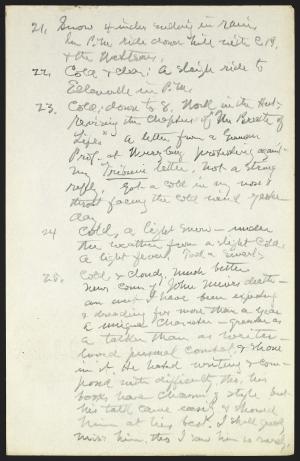 21, Snow 4 inches ending in rain,
In P.M. ride down hill with C.B.
& the Westons.
22, Cold & clear; A sleigh ride to
Ellenville in P.M.
23, Cold; down to 8, Work in the Hut
revising the chapters of "The Breath of
Life" A letter from a German
Prof. at Wurzburg protesting against
my Tribune letter, Not a strong
reply, Got a cold in my nose &
throat facing the cold wind yester-
day
24 Cold, a light snow — under
the weather from a slight cold.
A light fever,
25. Cold & cloudy, much better
News comes of John Muir's death —
an event I have been expecting
& dreading for more than a year
A unique character — greater as
a talker than as writer —
loved personal combat, & shone
in it. He hated writing & com-
posed with difficulty, tho, his
books have charm of style, but
his talk came easy & showed
him at his best. I shall greatly
miss him, tho I saw him so rarely.